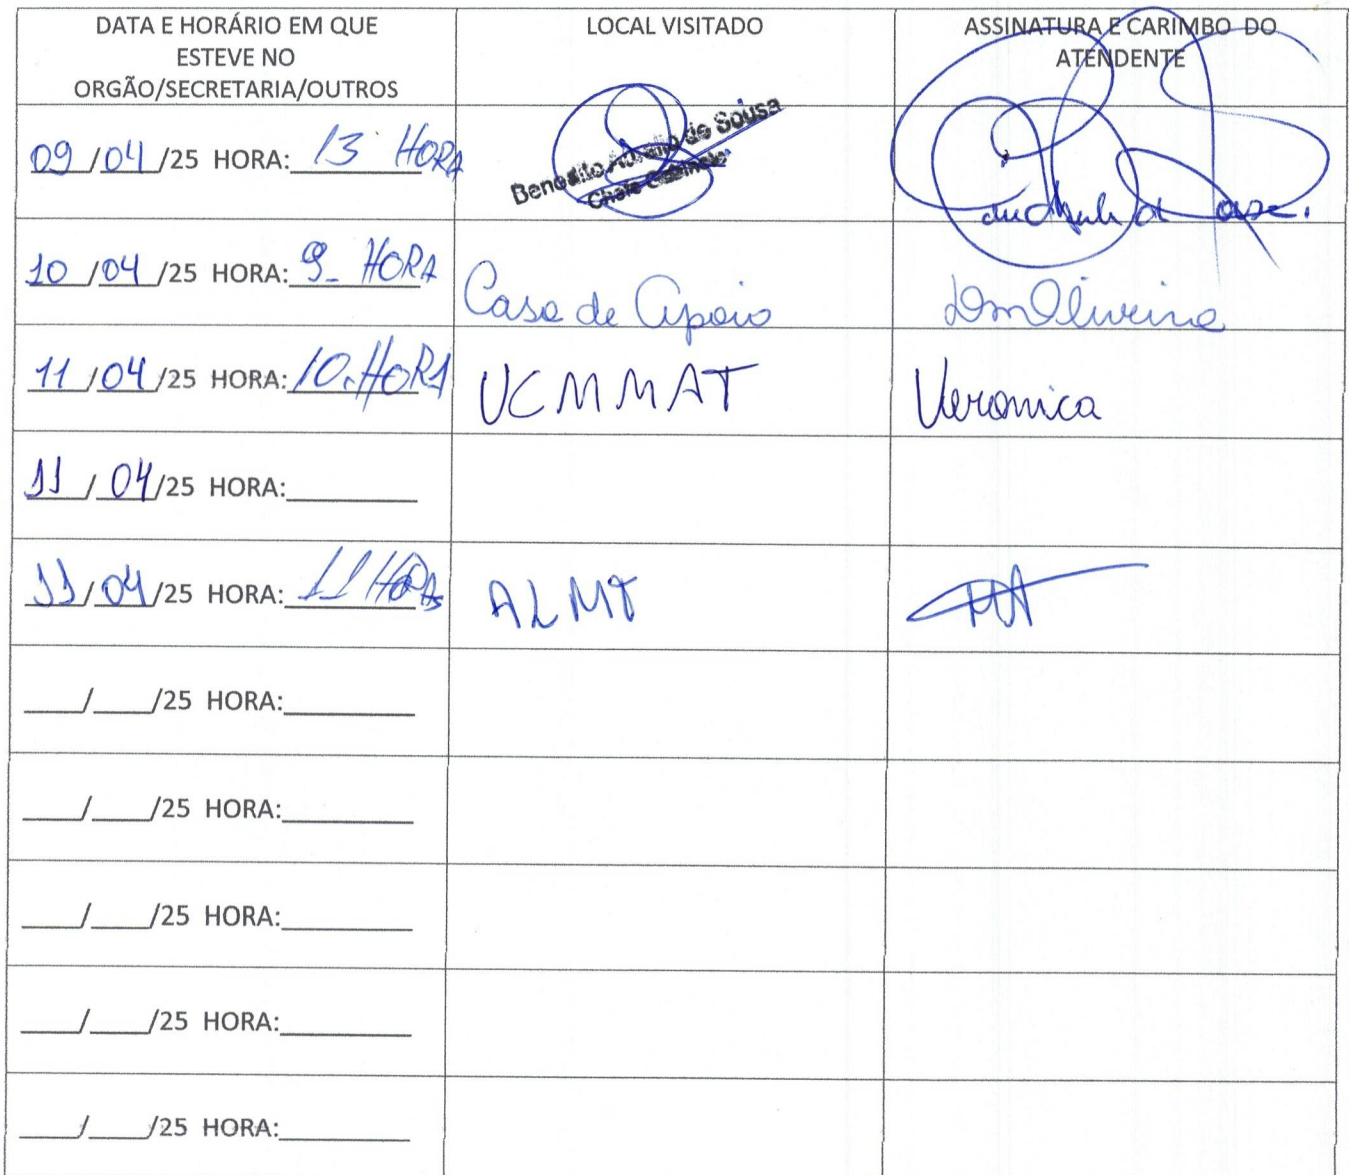 DATA E HORÁRIO EM QUE
ESTEVE NO
ORGÃO/SECRETARIA/OUTROS
LOCAL VISITADO
ASSINATURA E CARIMBO DO
ATENDENTE
09/04/25 HORA: 13 HORA
Benedito de Sousa
Chefe
10/04/25 HORA: 9_ HORA
Casa de Apoio
Oliveira
11/04/25 HORA: 10.HORA
UCMMAT
Veronica
11/04/25 HORA:
11/04/25 HORA: 11 HORAS
ALMT
___/___/25 HORA:
___/___/25 HORA:
___/___/25 HORA:
___/___/25 HORA:
___/___/25 HORA: